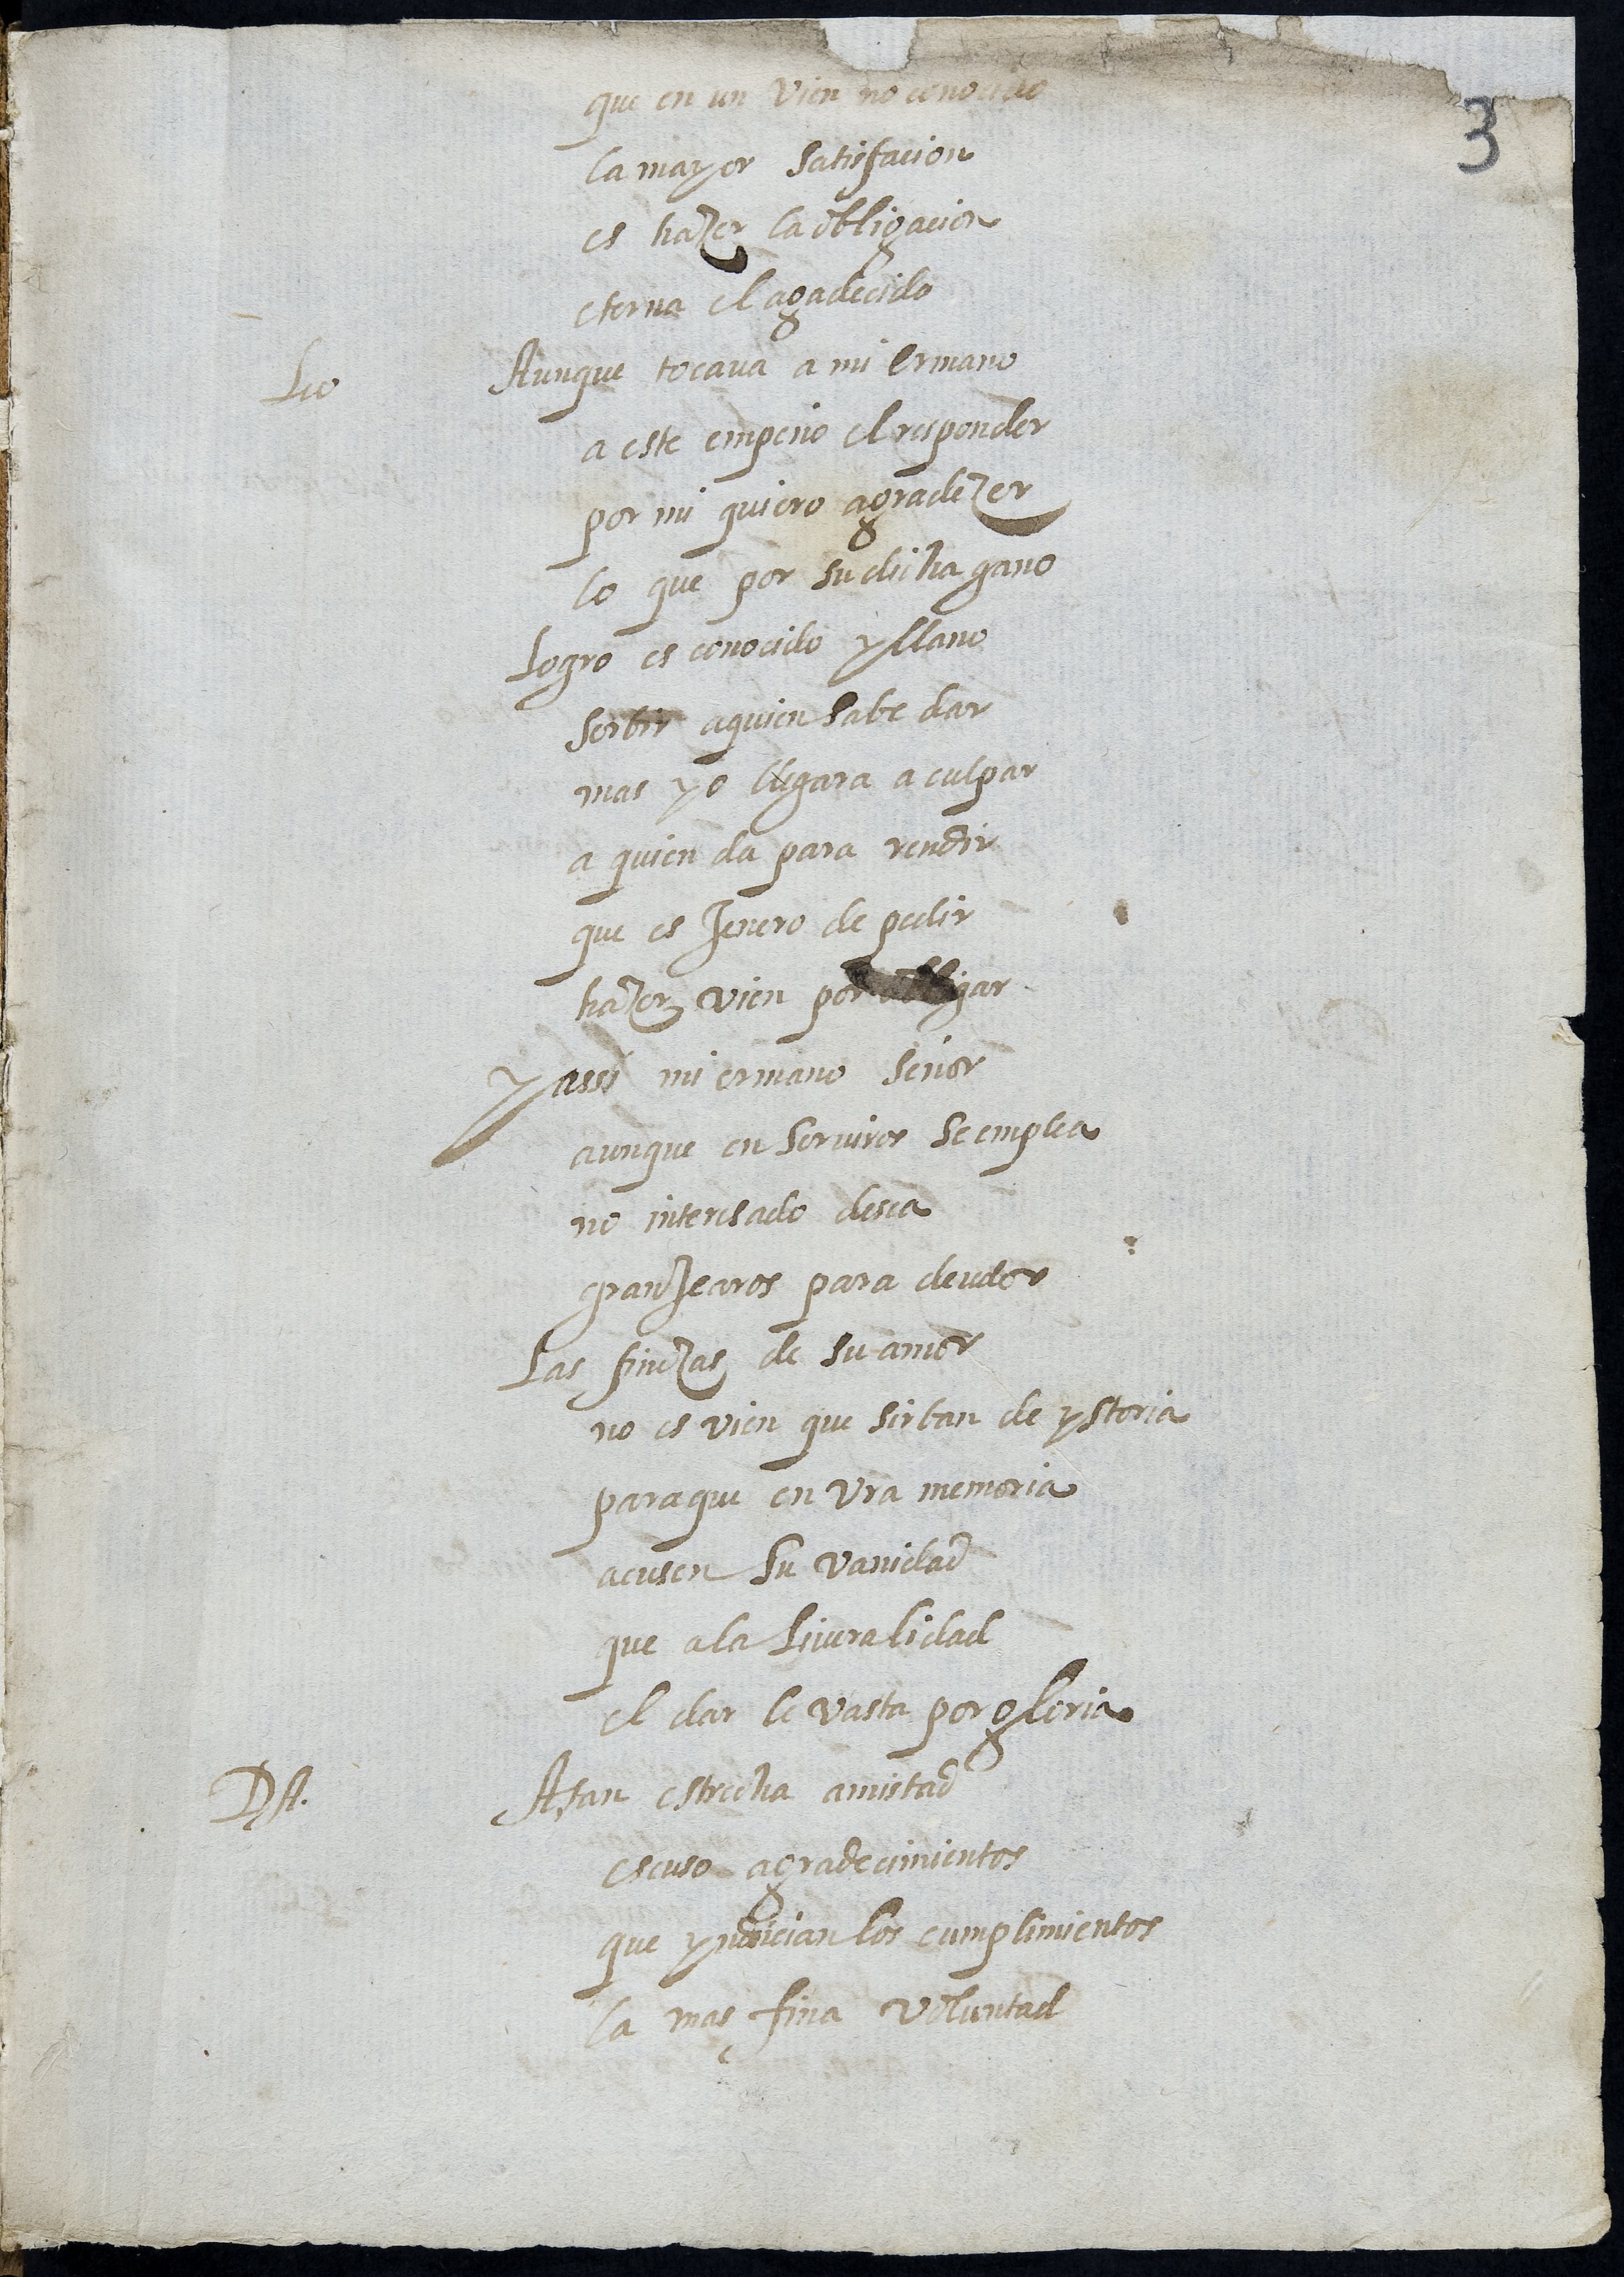 3
que en un vien no conocido
la mayor satisfacion
es hazer la obligacion
eterna el agadecido
Leo Aunque tocaua a mi ermano
a este empeño el responder
por mi quiero agradezer
lo que por su dicha gano
Logro es conocido y llano
serbir a quien sabe dar
mas yo llegara a culpar
a quien da para rendir
que es Jenero de pedir
hazer vien por obligar
y assi mi ermano señor
aunque en seruiros se emplea
no interesado desea
granJearos para deudor
Las finezas de su amor
no es vien que sirban de ystoria
para que en vra memoria
acusen su vanidad
que a la liueralidad
el dar le vasta por gloria
DA. A tan estrecha amistad
escuso agradecimientos
que yndician los cumplimientos
la mas fina voluntad